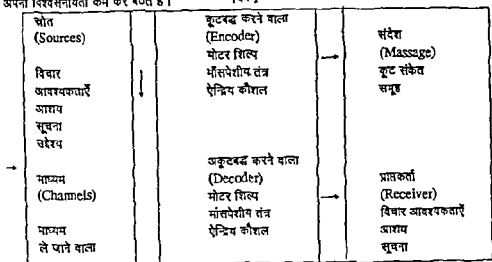 अपनी विश्वसनीयता कम कर बैठते हैं।
स्रोत
(Sources)
विचार
आवश्यकताएँ
आशय
सूचना
उद्देश्य
माध्यम
(Channels)
माध्यम
ले पाने वाला
कूटबद्ध करने वाला
(Encoder)
मोटर शिल्प
माँसपेशीय तंत्र
ऐन्द्रिय कौशल
अकूटबद्ध करने वाला
(Decoder)
मोटर शिल्प
मांसपेशीय तंत्र
ऐन्द्रिय कौशल
संदेश
(Massage)
कूट संकेत
समूह
प्राप्तकर्ता
(Receiver)
विचार आवश्यकताएँ
आशय
सूचना